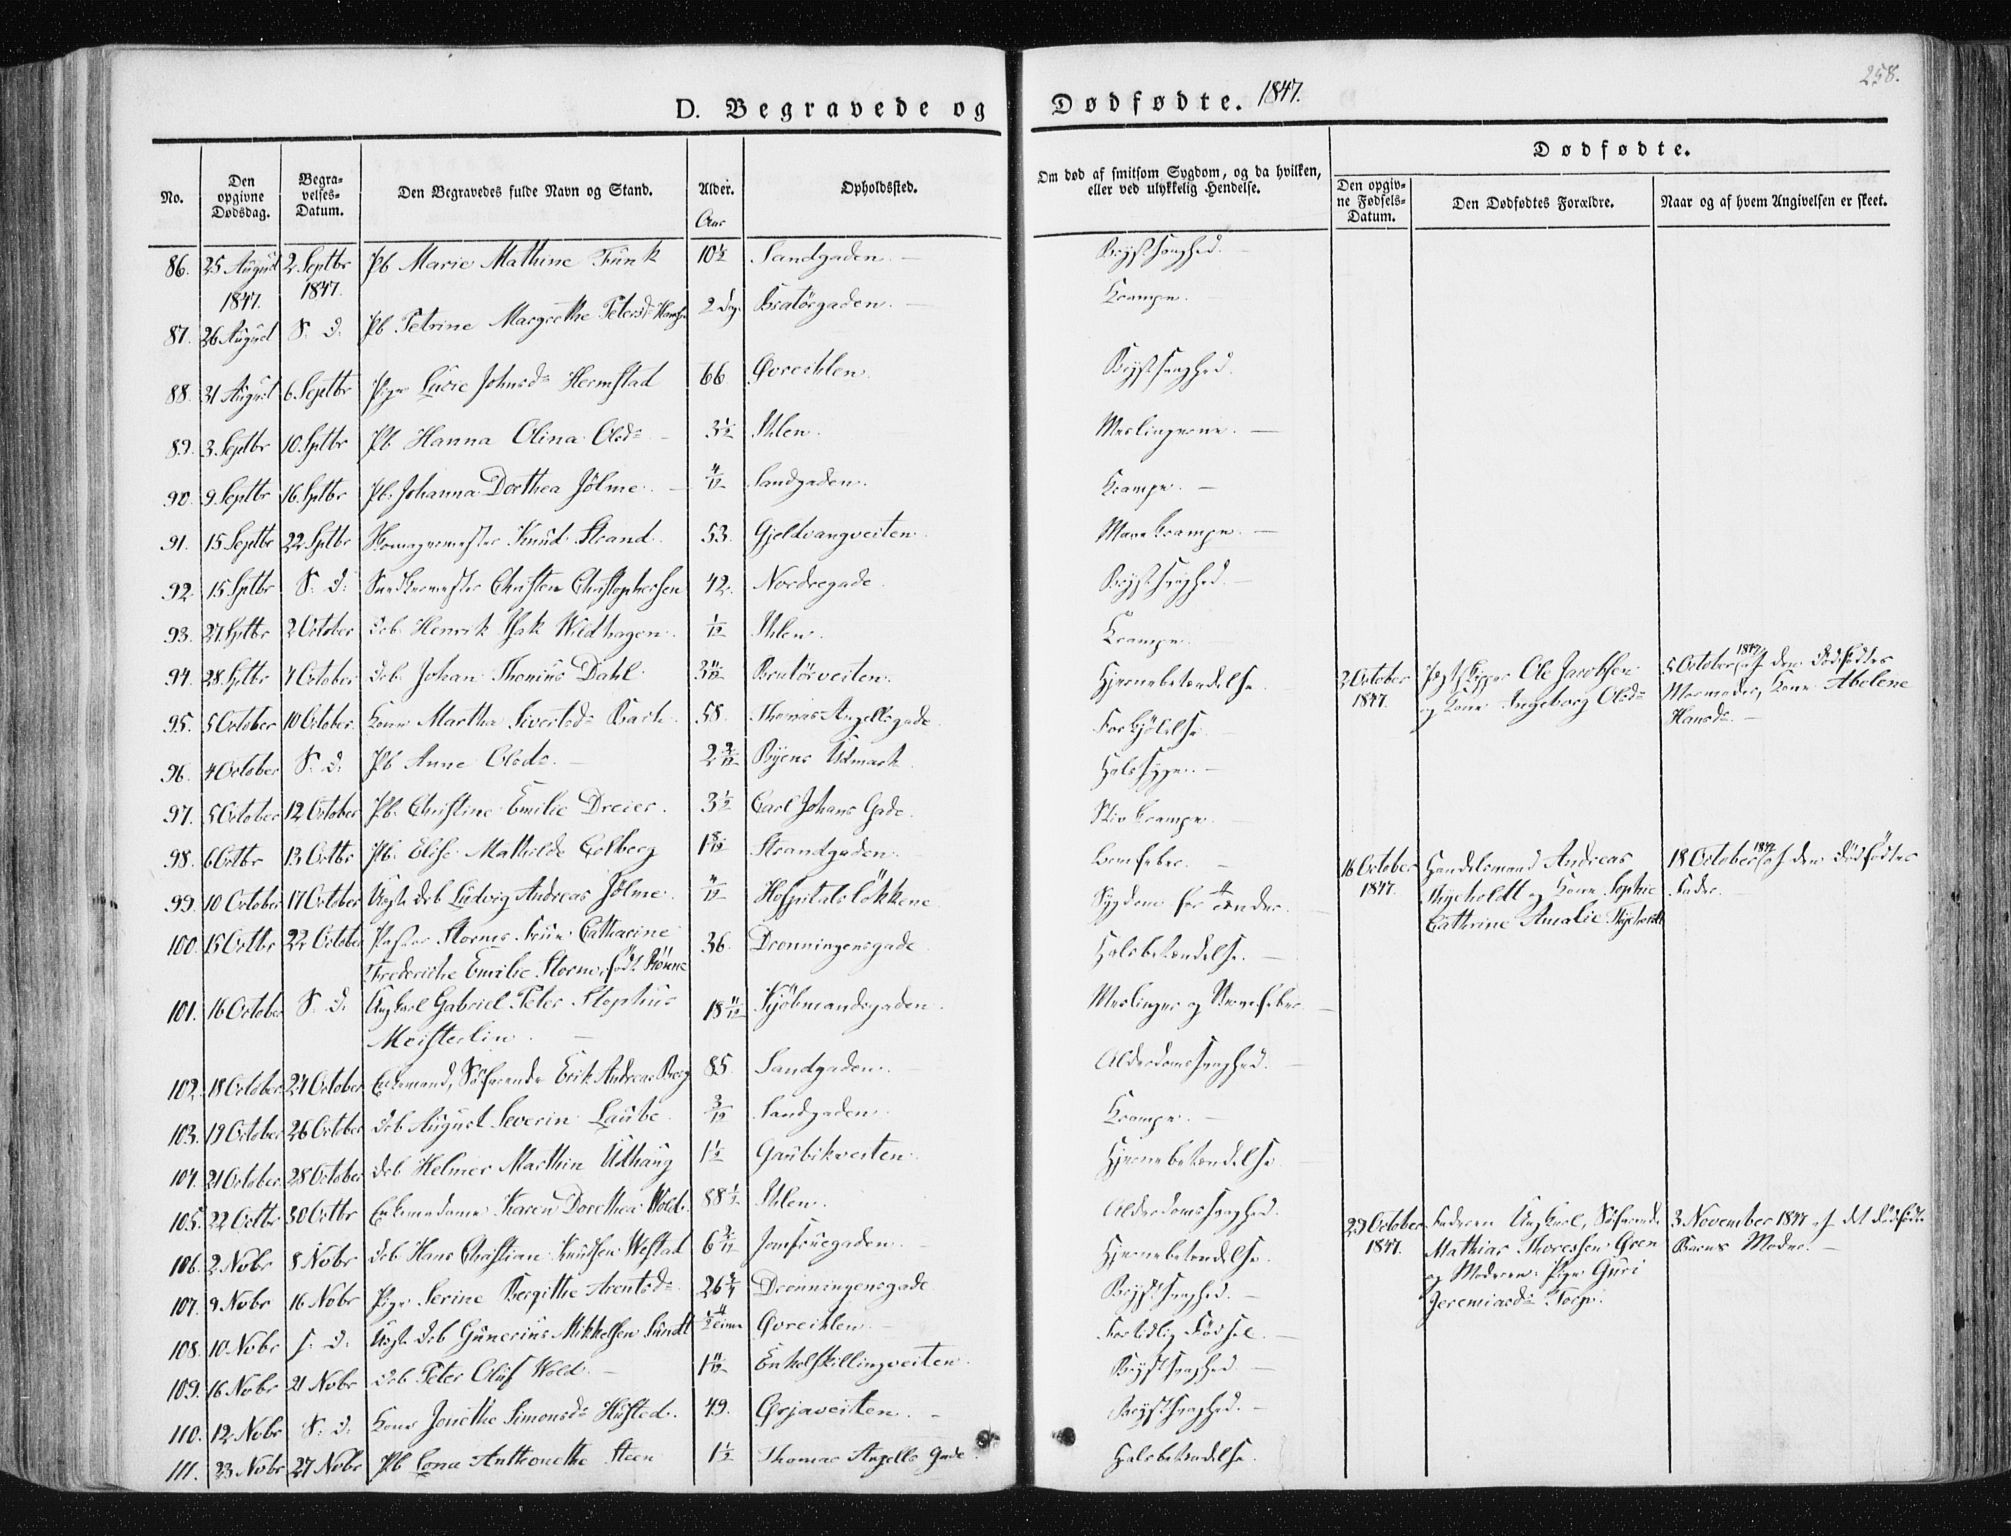 258.
D. Begravede og Dødfødte. 1847.
No.
Den opgivne Dødsdag.
Begravelses-Datum.
Den Begravedes fulde Navn og Stand.
Alder.
Aar
Opholdssted.
Om død af smitsom Sygdom, og da hvilken, eller ved ulykkelig Hendelse.
Dødfødte.
Den opgivne Fødsels-Datum.
Den Dødfødtes Forældre.
Naar og af hvem Angivelsen er skeet.
86. 25 August 1847. 2 Septbr 1847. Pb Marie Mathine Funk 10½ Sandgaden. Brystsvaghed.
87. 26 August S. D. Pb Petrine Margrethe Petersd. 2 Dage Bratørgaden. Krampe.
88. 31 August 6 Septbr Pige Lucie Johnsd. Hermstad 66 Øvreihlen. Brystsvaghed.
89. 3. Septbr 10. Septbr Pb. Hanna Olina Olsd. 3½ Ihlen. Meslingerne.
90. 9. Septbr 16. Septbr Pb. Johanna Dorthea Jölme. 4/12 Sandgaden. Krampe.
91. 15 Septbr 22 Septbr Knud Strand. 53. Gjeldvangveiten. Mavekrampe.
92. 15 Septbr S. D. Snedkermester Christen Christophersen 42. Nordregade. Brystsyghed.
93. 27. Septbr 2 October Db. Henrik Isak Wildhagen. 1/12 Ihlen. Krampe.
94. 28. Septbr 4 October Db. Johan Thomius Dahl. 3 11/12 Bratörveiten. Hjernebetændelse.
95. 5 October 10 October. Kone Martha Sivertsd. Bark. 58. Thomas Angellsgade. Forkjölelse.
96. 4 October S. D. Pb Anne Olsd. 2 2/12 Byens Udmark. Halssyge.
97. 5 October 12 October Pb. Christine Emilie Dreier. 3½ Carl Johans Gade. Stivkrampe.
98. 6 Octbr 13 Octbr Pb. Elise Mathilde Solberg 1 8/12 Strandgaden.
99. 10 October 17 October Uægte Db Ludvig Andreas Jölme. 4/12 Hospitalslökkene. Sygdom for Tænder.
100. 15 Octbr 22 October Storms Frue Catharine Frederiche Emilie Storm, född Rönne 36. Dronningensgade. Halsbetændelse.
101. 16 October S. D. Ungkarl Gabriel Peter Stephus Meisterlin. 18 11/12 Kjöbmandsgaden. Meslinger og Nervefeber.
102. 18 October 24 October Enkemand, Söfarende Erik Andreas Berg 85. Sandgaden. Alderdomssvaghed.
103. 19 October 26 October Db August Severin Laube. 3/12 Sandgaden. Krampe.
104. 21 October 28 October Db Helmer Marthin Udhaug 1½ Gaubikveiten. Hjernebetændelse.
105. 22 Octbr 30 Octbr Enkemadame Karen Dorethea Wold. 88½ Ihlen. Alderdomssvaghed.
106. 2 Novbr 8 Novbr Db Hans Christian Knudsen Westad 6 2/12 Jomfruegaden. Hjernebetændelse.
107. 9 Novbr 16 Novbr Pige Serine Bergithe Arentsd. 26 ¾ Dronningensgade. Brystsvaghed.
108. 10 Novbr S. D. Uægte Db Gunerius Mikkelsen Sundt Øvreihlen. Fortidlig Födsel.
109. 16 Novbr 21 Novbr Db Peter Oluf Wold. 1 11/12 Enkelskillingveiten. Brystsvaghed.
110. 12 Novbr S. D. Kone Jonethe Simonsd. Husted. 49. Ørjaveiten. Brystsvaghed.
111. 23 Novbr 27 Novbr Pb Lona Anthonethe Steen 1½ Thomas Angells Gade. Halsbetændelse.
2 October 1847. Jægtskipper Ole Jacobsen og Kone Ingeborg Olsd. 5 October 1847 af den Dödfödtes Mormoder, Kone Abelene Hansd.
16 October 1847. Handelsmand Andreas Thycholdt og Kone Sophie Cathrine Amalie Thycholdt 18 October 1847 af den Dödfödtes Fader.
29 October 1847. Faderen Ungkarl, Söfarende Mathias Thoresen Gren og Moderen: Pige Guri Jeremiasd. Torp. 3 November 1847 af det dödfödte Barns Moder.